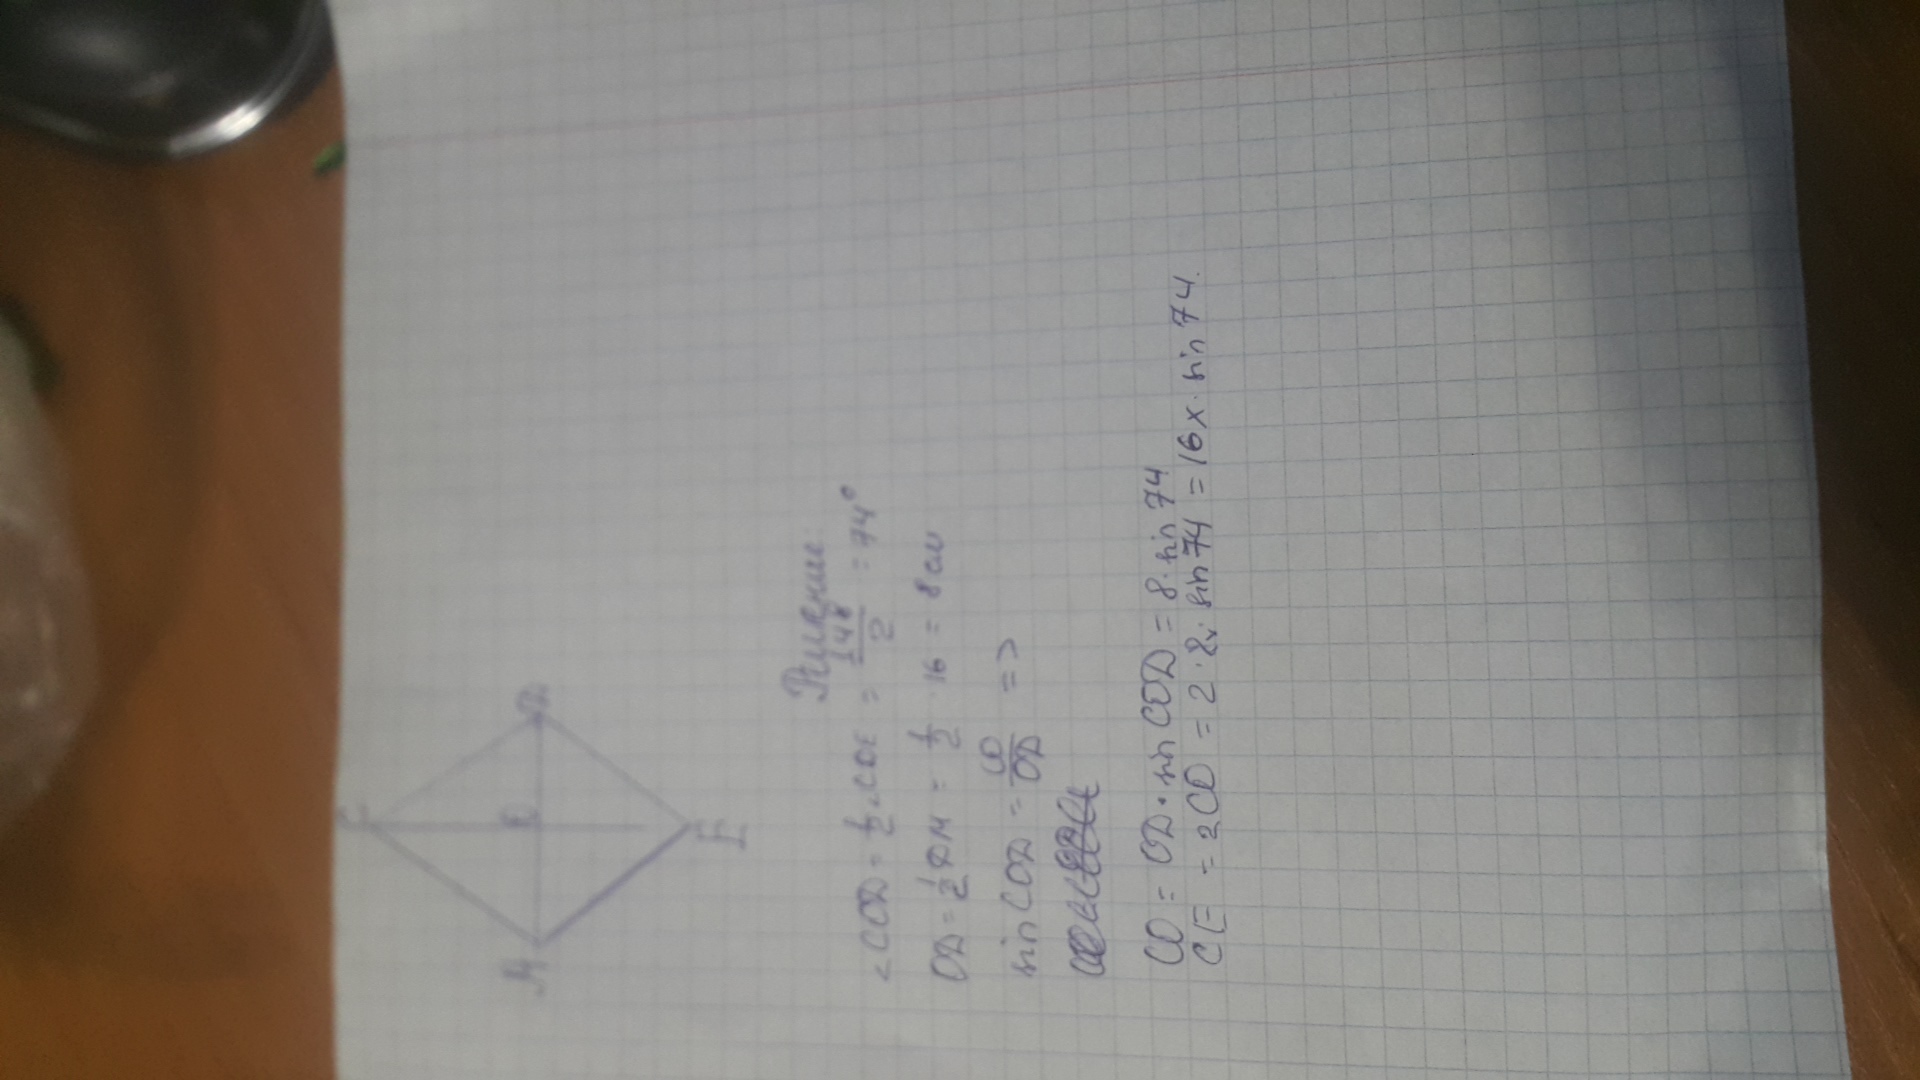 C
M
D
E
Решение
∠COD = 1/2 ∠CDE = 148/2 = 74°
OD = 1/2 DM = 1/2 · 16 = 8 см
sin COD = CO/OD =>
CO = OD · sin COD = 8 · sin 74
CE = 2CO = 2 · 8 · sin 74 = 16 × · sin 74.